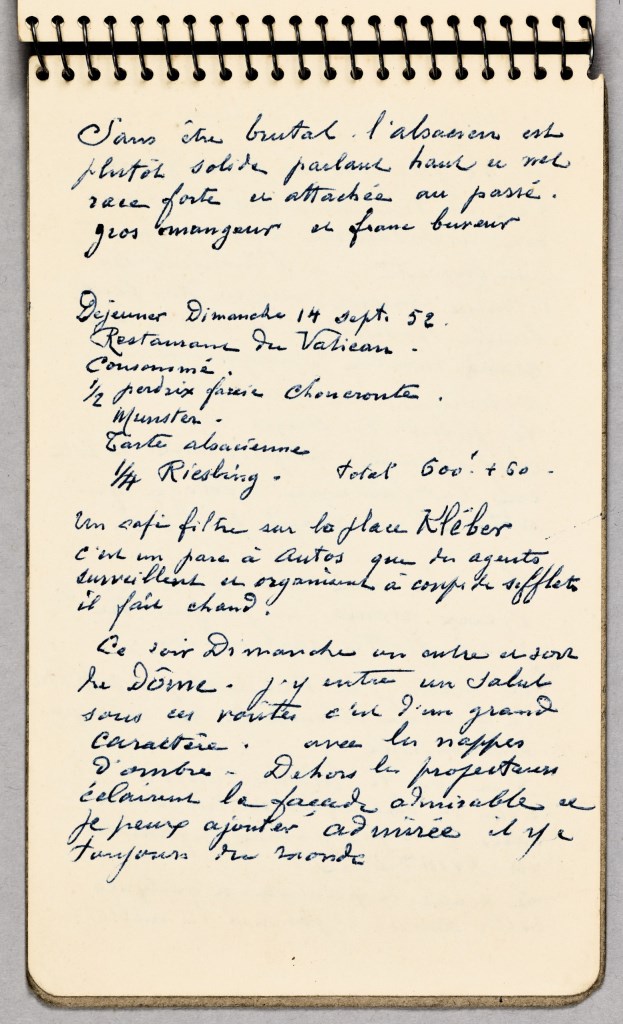 Sans être brutal. l'alsacien est
plutôt solide parlant haut et net
race forte et attachée au passé.
gros mangeur et franc buveur
Dejeuner Dimanche 14 sept. 52.
Restaurant du Vatican.
Consommé.
1/2 perdrix farcie choucroute.
Munster.
Tarte alsacienne
1/4 Riesling. total 600f + 60.
Un café filtre sur la place Kléber
c'est un parc à autos que des agents
surveillent et organisent à coups de sifflets
il fait chaud.
Ce soir Dimanche on entre et sort
du Dôme. j'y entre un salut
sous ces voûtes c'est d'un grand
caractère. avec les nappes
d'ombre. Dehors les projecteurs
éclairent la façade admirable et
je peux ajouter admirée il y a
toujours du monde